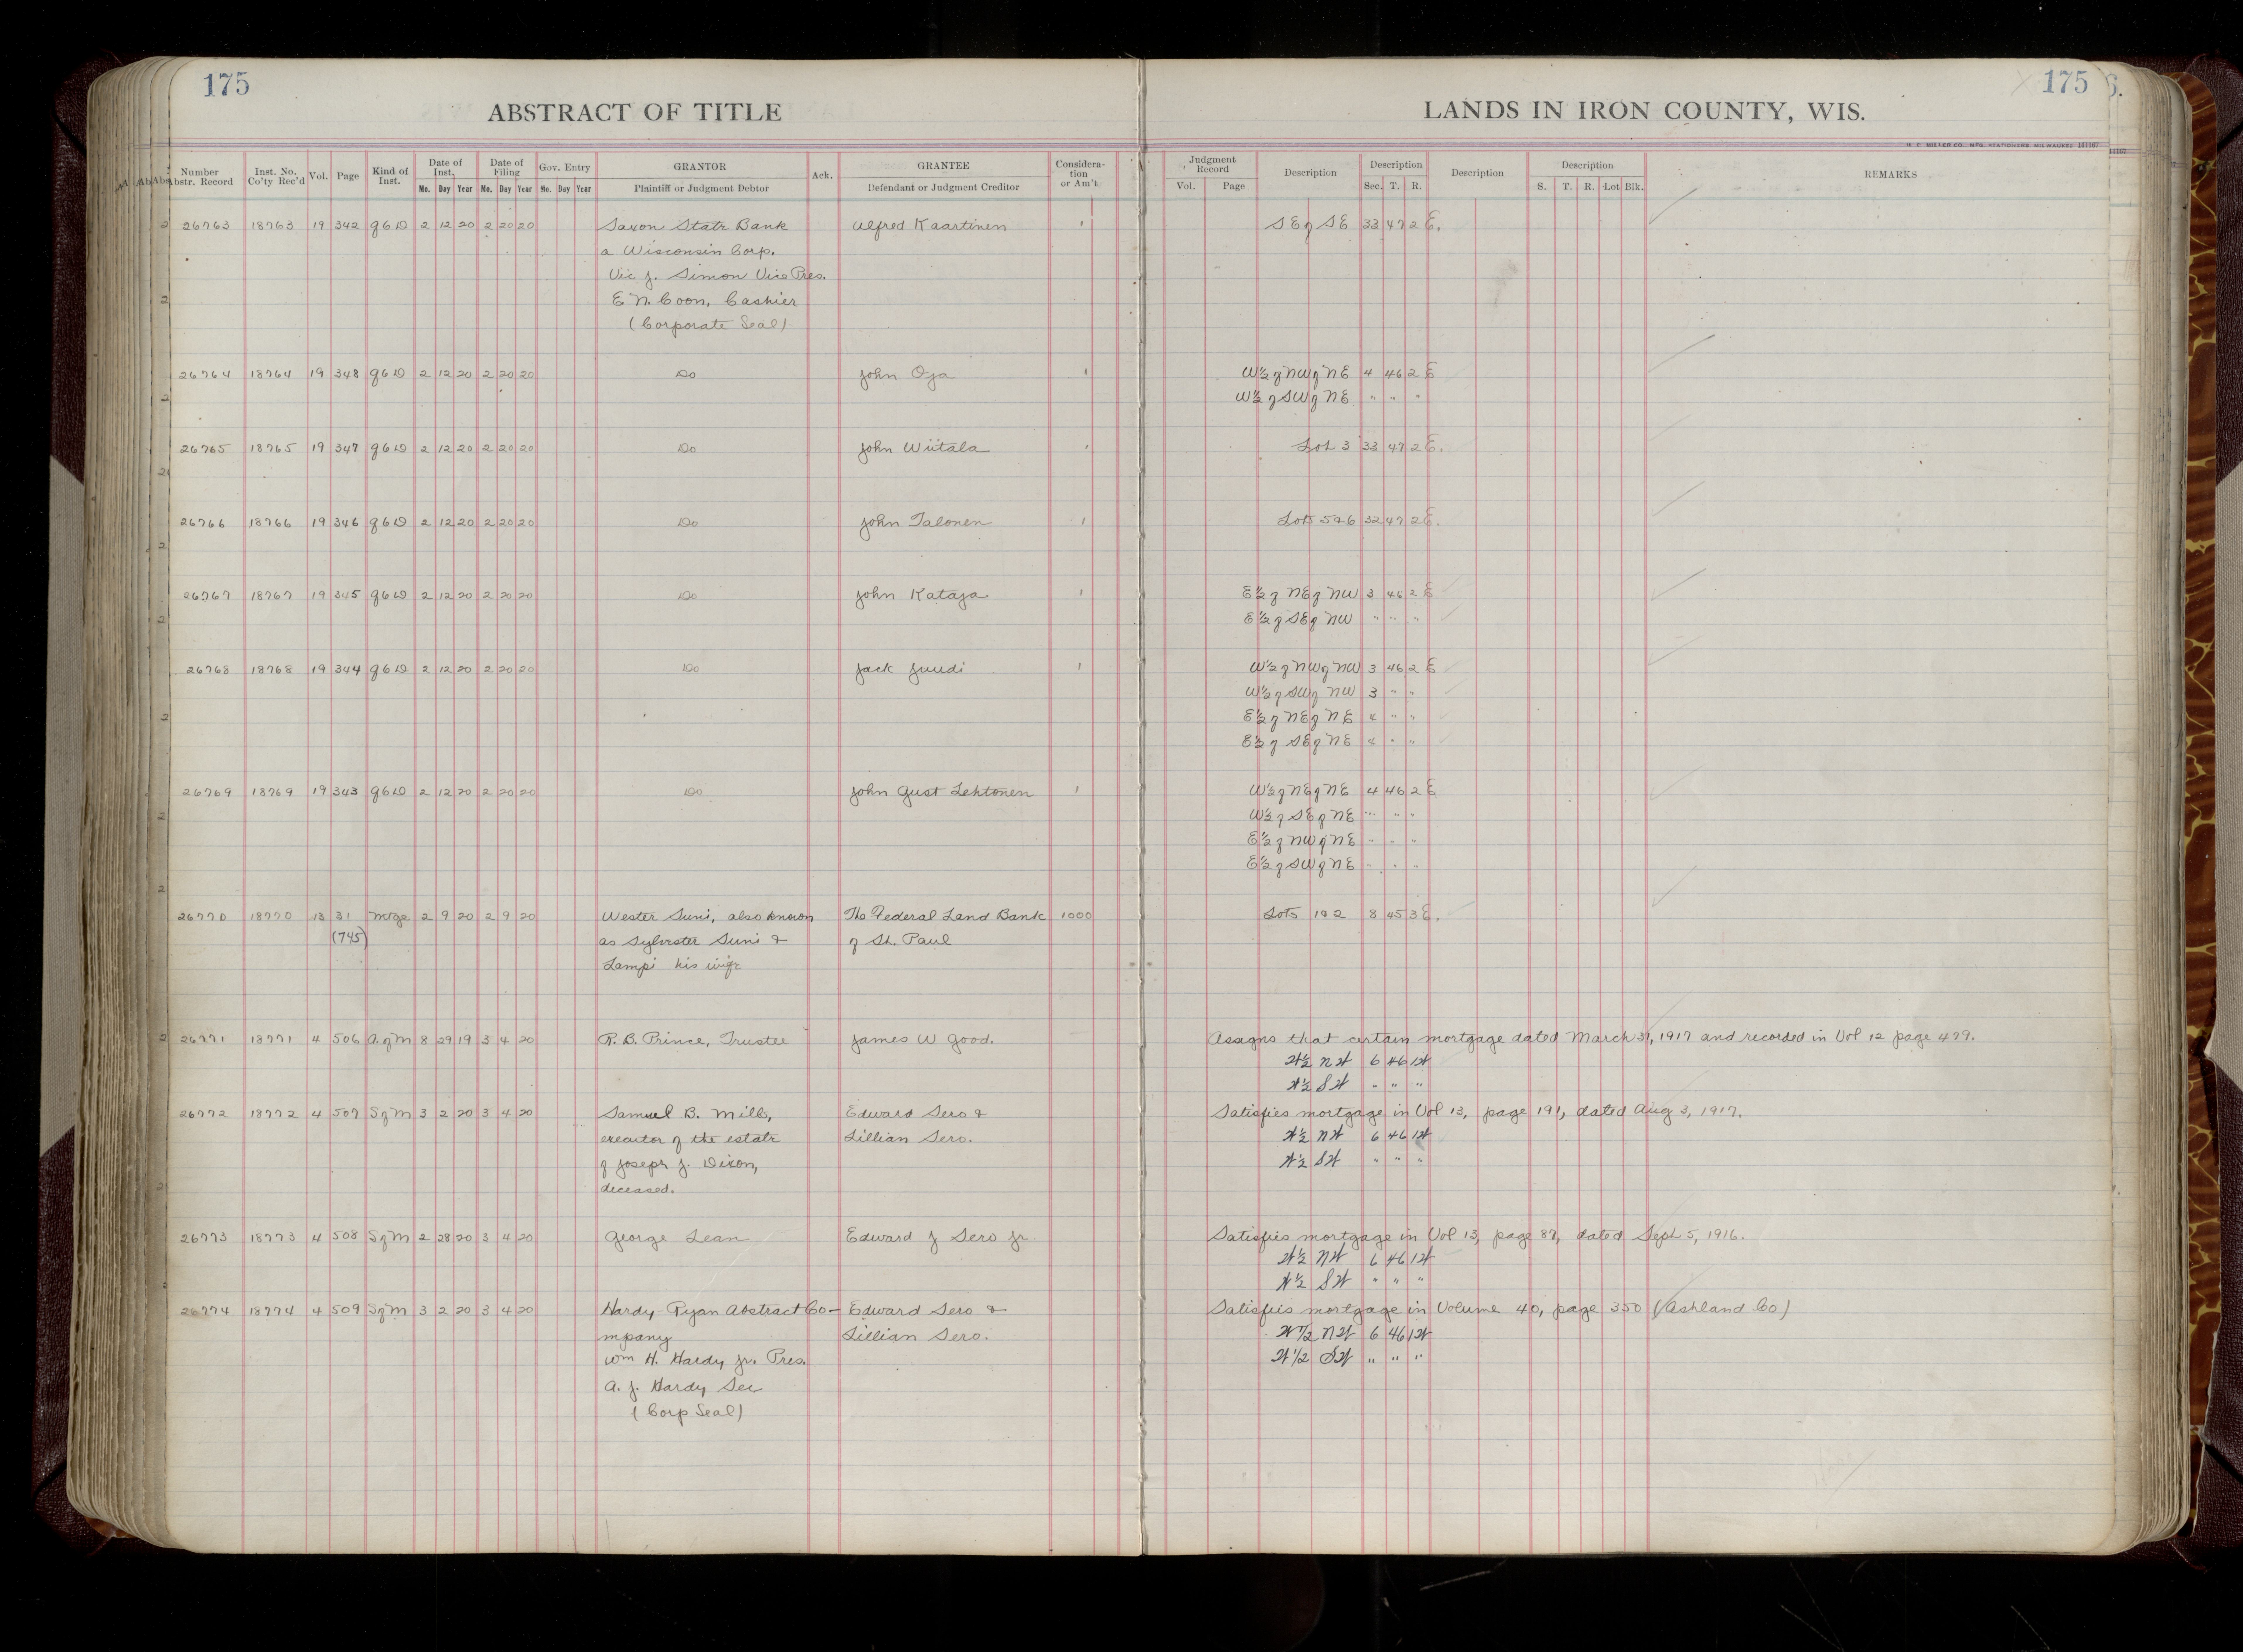 175
175
ABSTRACT OF TITLE
LANDS IN IRON COUNTY, WIS.
H. C. MILLER CO., MFG. STATIONERS, MILWAUKEE 181167
Number Abstr. Record Inst. No. Co'ty Rec'd Vol. Page Kind of Inst. Date of Inst. Mo. Day Year Date of Filing Mo. Day Year Gov. Entry Mo. Day Year GRANTOR Plaintiff or Judgment Debtor Ack. GRANTEE Defendant or Judgment Creditor Considera-tion or Am't Judgment Record Vol. Page Description Description Sec. T. R. Description Description S. T. R. Lot Blk. REMARKS
26763 18763 19 342 Q C D 2 12 20 2 20 20 Saxon State Bank Alfred Kaartinen 1 SE of SE 33 47 2 E.
a Wisconsin Corp.
Vic J. Simon Vice Pres.
E N. Coon, Cashier
(Corporate Seal)
26764 18764 19 348 Q C D 2 12 20 2 20 20 Do John Oja 1 W½ of NW of NE 4 46 2 E
W½ of SW of NE " " "
26765 18765 19 347 Q C D 2 12 20 2 20 20 Do John Wiitala 1 Lot 3 33 47 2 E.
26766 18766 19 346 Q C D 2 12 20 2 20 20 Do John Talonen 1 Lots 5 & 6 32 47 2 E.
26767 18767 19 345 Q C D 2 12 20 2 20 20 Do John Kataja 1 E½ of NE of NW 3 46 2 E
E½ of SE of NW " " "
26768 18768 19 344 Q C D 2 12 20 2 20 20 Do Jack Juudi 1 W½ of NW of NW 3 46 2 E
W½ of SW of NW 3 " "
E½ of NE of NE 4 " "
E½ of SE of NE 4 " "
26769 18769 19 343 Q C D 2 12 20 2 20 20 Do John Gust Lehtonen 1 W½ of NE of NE 4 46 2 E
W½ of SE of NE " " "
E½ of NW of NE " " "
E½ of SW of NE " " "
26770 18770 13 31 Mtge 2 9 20 2 9 20 Wester Suni, also known The Federal Land Bank 1000 Lots 1 & 2 8 45 3 E.
(745) as Sylvester Suni & of St. Paul
Lampi his wife
26771 18771 4 506 A. of M 8 29 19 3 4 20 R. B. Prince, Trustee James W Good. Assigns that certain mortgage dated March 31, 1917 and recorded in Vol 12 page 479.
W½ NW 6 46 1W
W½ SW " " "
26772 18772 4 507 S of M 3 2 20 3 4 20 Samuel B. Mills, Edward Sero & Satisfies mortgage in Vol 13, page 191, dated Aug 3, 1917.
executor of the estate Lillian Sero. W½ NW 6 46 1W
of Joseph J. Dixon, W½ SW " " "
deceased.
26773 18773 4 508 S of M 2 28 20 3 4 20 George Lean Edward J Sero Jr. Satisfies mortgage in Vol 13, page 87, dated Sept 5, 1916.
W½ NW 6 46 1W
W½ SW " " "
26774 18774 4 509 S of M 3 2 20 3 4 20 Hardy-Ryan Abstract Co- Edward Sero & Satisfies mortgage in Volume 40, page 350 (Ashland Co)
mpany Lillian Sero. W½ NW 6 46 1W
Wm H. Hardy, Jr. Pres. W 1/2 SW " " "
A. J. Hardy Sec
(Corp Seal)